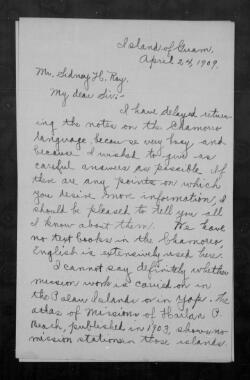 Island of Guam,
April 24, 1909.
Mr. Sidney H. Ray,
My dear Sir:-
I have delayed return-
ing the notes on the Chamoro
language because very busy, and
because I wished to give as
careful answers as possible. If
there are any points on which
you desire more information, I
should be pleased to tell you all
I know about them. We have
no text books in the Chamoro,
English is extensively used here.
I cannot say definitely whether
mission work is carried on in
the Palau Islands or in Yap. The
atlas of Missions of Harlan P.
Beach, published in 1903, shows no
mission stations in those islands.